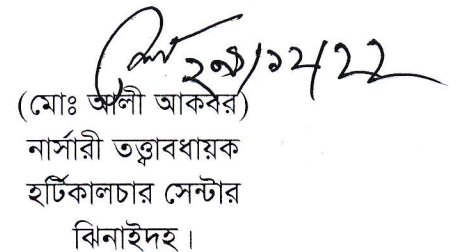 ২৯/১২/২২
(মোঃ আলী আকবর)
নার্সারী তত্ত্বাবধায়ক
হর্টিকালচার সেন্টার
ঝিনাইদহ।